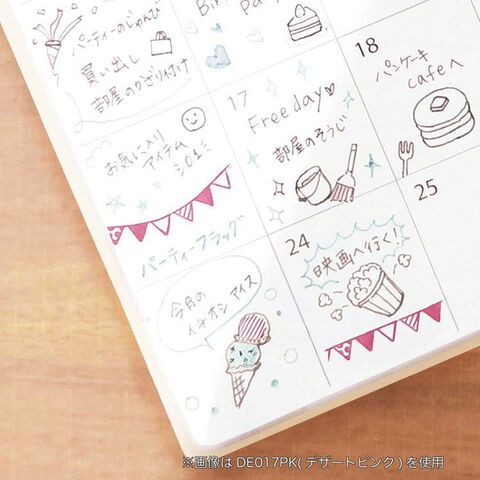 パーティーのじゅんび
買い出し
部屋のかざり付け
17
Free day♡
部屋のそうじ
18
パンケーキ
cafeへ
お気に入り
アイテム
パーティーフラッグ
24
映画へ行く!
25
今月の
イチオシ アイス
※画像は DE017PK( デザートピンク ) を使用